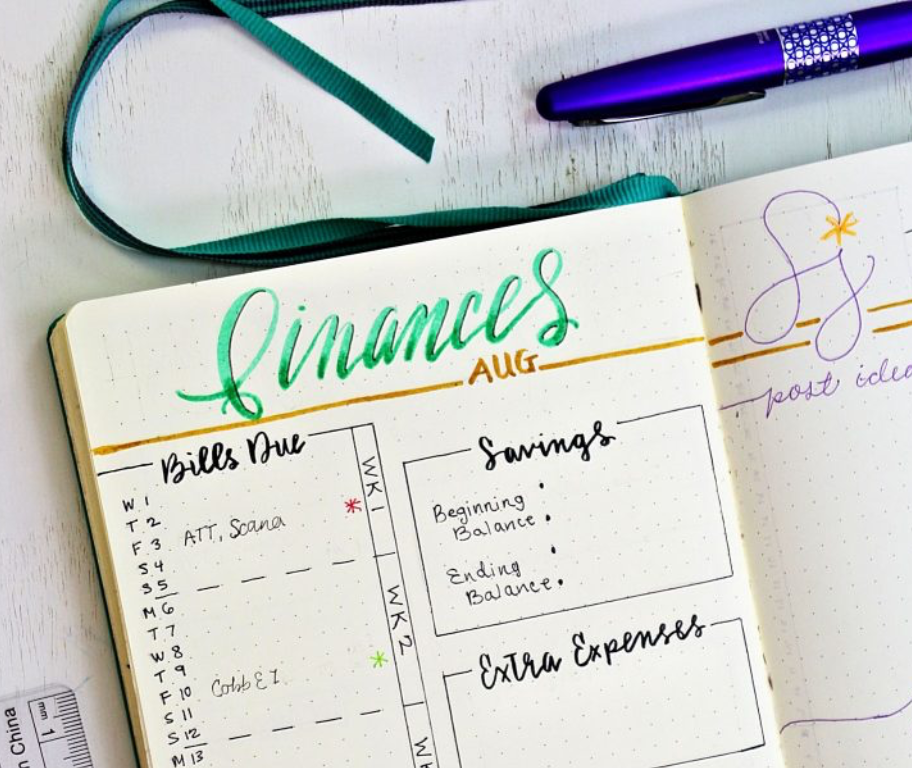 finances
AUG
Bills Due
W 1
T 2
F 3 ATT, Scana
S 4
S 5
M 6
T 7
W 8
T 9
F 10
S 11
S 12
M 13
WK 1
WK 2
Savings
Beginning
Balance:
Ending
Balance:
Extra Expenses
post
China
mm
1